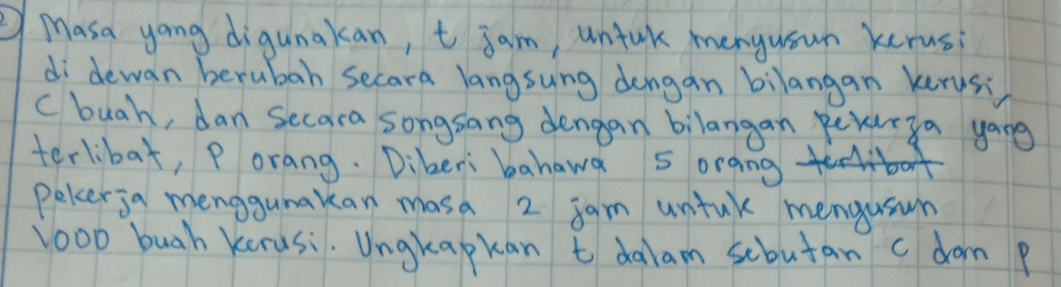 2) Masa yang digunakan, t jam, untuk menyusun kerusi
di dewan berubah secara langsung dengan bilangan kerusi,
c buah, dan secara songsang dengan bilangan pekerja yang
terlibat, P orang. Diberi bahawa 5 orang terlibat
pekerja menggunakan masa 2 jam untuk mengusun
1000 buah kerusi. Ungkapkan t dalam sebutan c dan p